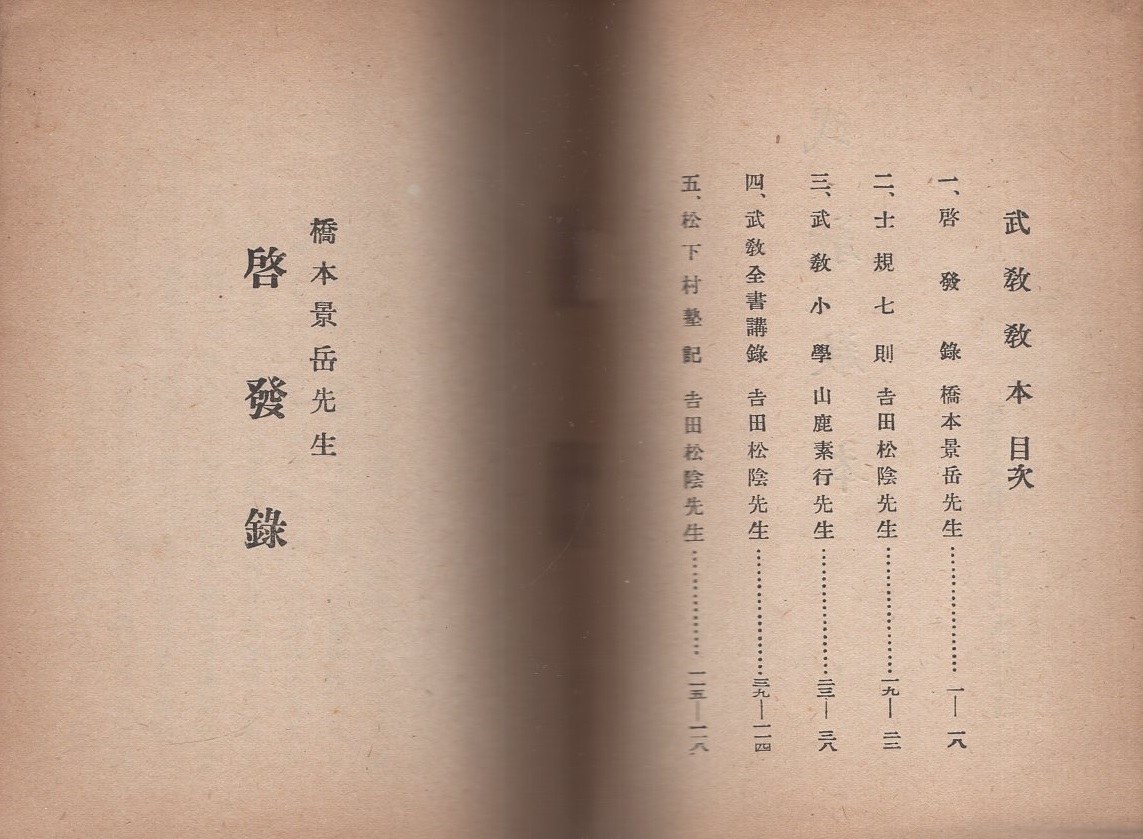 武敎敎本目次
一、啓發錄 橋本景岳先生…………………一—一八
二、士規七則 吉田松陰先生…………………一九—二二
三、武敎小學 山鹿素行先生…………………二三—三八
四、武敎全書講錄 吉田松陰先生…………………三九—一一四
五、松下村塾記 吉田松陰先生…………………一一五—一一八
橋本景岳先生
啓發錄